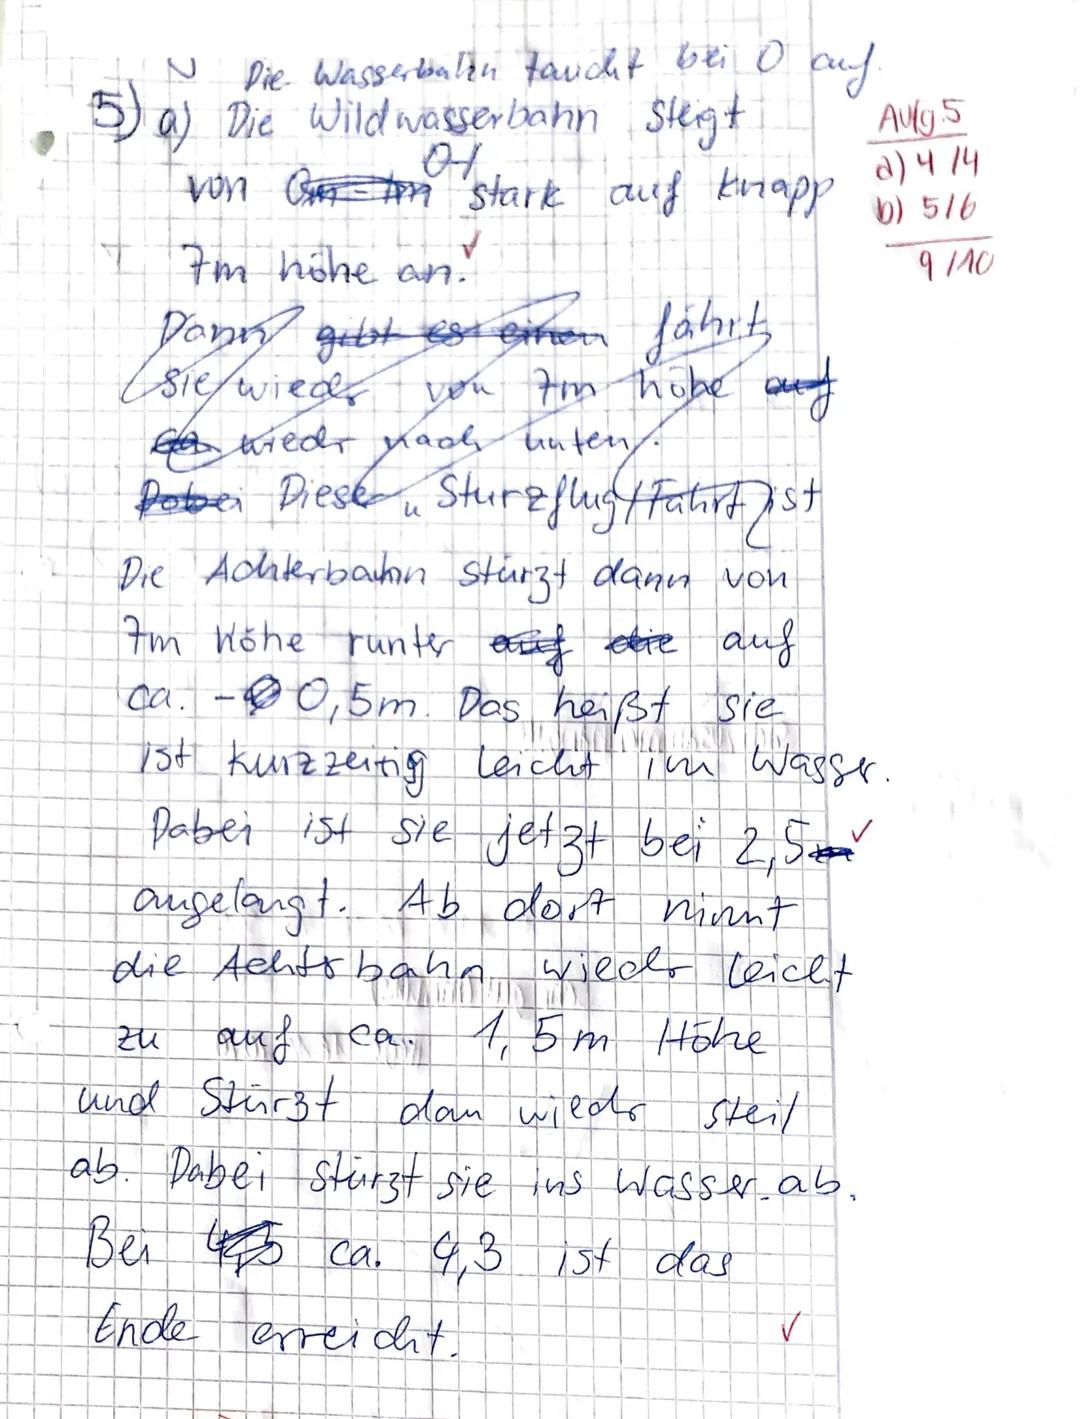 Die Wasserbahn taucht bei 0 auf.
5) a) Die Wildwasserbahn steigt
von 0-1 stark auf knapp
7m höhe an. ✓
Dann gibt es einen fährt
sie wieder von 7m höhe auf
wieder nach unten.
Dobei Diese Sturzflug/Fahrt ist
Die Achterbahn stürzt dann von
7m Höhe runter auf die auf
ca. -0,5m. Das heißt sie
ist kurzzeitig leicht im Wasser.
Dabei ist sie jetzt bei 2,5 ✓
angelangt. Ab dort nimmt
die Achterbahn wieder leicht
zu auf ca. 1,5m Höhe
und Stürzt dan wieder steil
ab. Dabei stürzt sie ins Wasser ab.
Bei ca. 4,3 ist das
Ende erreicht. ✓
Aufg.5
a) 4/4
b) 5/6
9/10